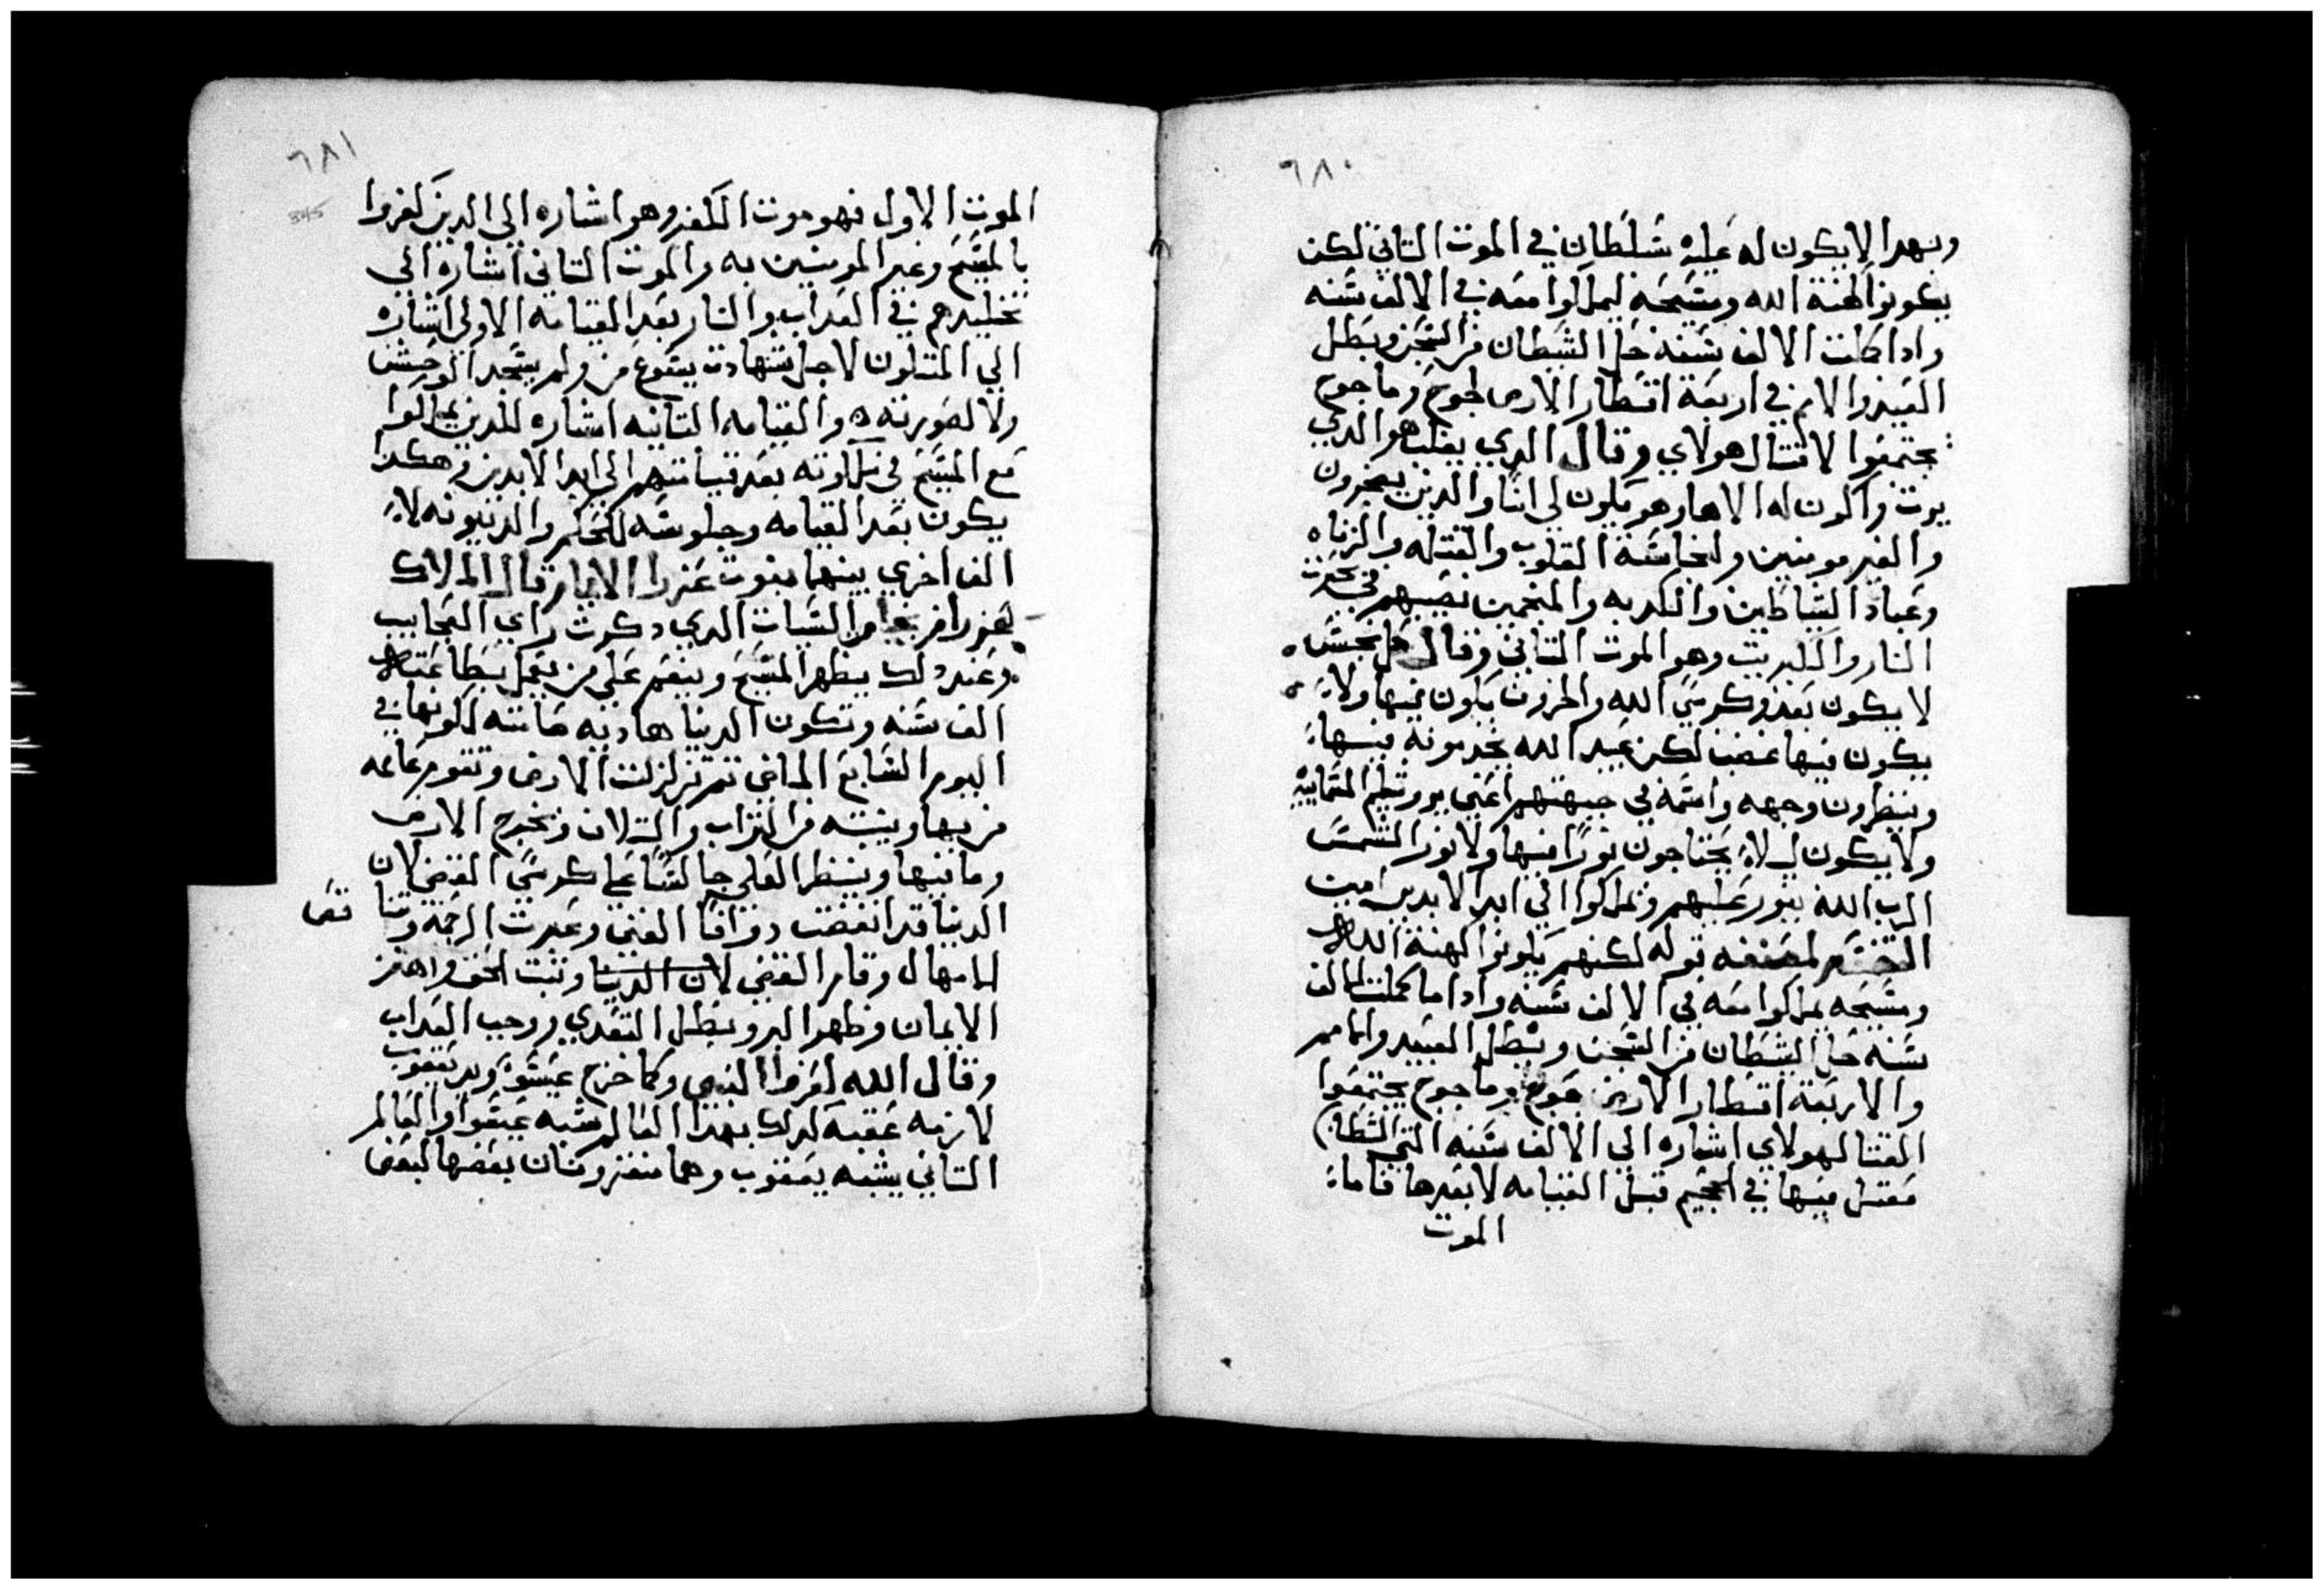 ٦٨٠
وبهدا لا يكون له عليه شلطان في الموت التاني لكن
يكونوا كهنة الله ومشيحه ليملكوا معه في الالف شنه
وادا كملت الالف شنه حل الشيطان من الشجن ويطل
العبيد والامم في اربعة اقطار الارص لجوج وماجوج
يجتمعوا لاقتال هولاي وقال الدي يغلب هو الدي
يرت واكون له الاها وهو يكون لي ابنا والدين
والغير مومنين وانجاسة القلوب والقتله والزناه
وعباد الشياطين والكدبه والمنجمين نصيبهم في بحيرت
النار والكبريت وهو الموت التاني وقال كل نجس
لا يكون بعد وكرسي الله والخروف يكون فيها ولا
يكون فيها غضب لكن عبيد الله يخدمونه فيها
وينظرون وجهه واسمه في جبهتهم اعني يروشليم السمايية
ولا يكون ليل ولا يحتاجون نورا فيها ولا نور الشمس
الرب الله ينور عليهم ويملكوا الي ابد الابدين امين
التفسير لمصنفه قوله لكنهم يكونوا كهنة الله
ومشيحه يملكوا معه في الالف شنه وادا ما كملت الالف
شنه حل الشيطان من الشجن ويطل العبيد والامم
والاربعة اقطار الارض جوج وماجوج يجتمعوا
القتال هولاي اشاره الي الالف شنه التي الشيطان
معتقل فيها في الجحيم قبل القيامه لا بعدها فاما
الموت
٦٨١
345
الموت الاول فهو موت الكفر وهو اشاره الي الدين كفروا
بالمشيح وغير المومنين به والموت التاني اشاره الي
تخليدهم في العداب والنار بعد القيامه الاولي اشاره
الي المقتلون لاجل شهادت يشوع من ولم يسجد الوحش
ولا لصورته والقيامه التانيه اشاره للدين يملكوا
مع المسيح في ملكوته بعد قيامتهم الي ابد الابدين وهكدا
يكون بعد القيامه وجلوسه للحكم والدينونه لا
الف اخري بينهما بنوت عزرا الايمان قال الملاك
لعزرا من السيات الدي دكرت راي العجايب
وعند دلك يظهر المشيح وينعم علي من يعمل
الف شنه وتكون الدنيا هاديه صامته لكونها في
اليوم السابع الماضي تم تزلزلت الارض وتقوم عامه
من بها وينتبه من التراب والتلان وتخرج الارص
وما فيها وينظر العلي جالسًا علي كرسي القضي لان
الدنيا قد انقضت ووافا الفني وعبرت الرحمه وفنا
الامهال وقام القضي لان الدنيا وتبت الحق واهتز
الايمان وظهر البر وبطل التعدي ووجب العداب
وقال الله لعزرا النبي وكما خرج عيسو ويد يعقوب
لازمه عقبه كدلك بهدا العالم شبه عيسوا والعالم
التاني يشبه يعقوب وهما مقترونان بعضها لبعض